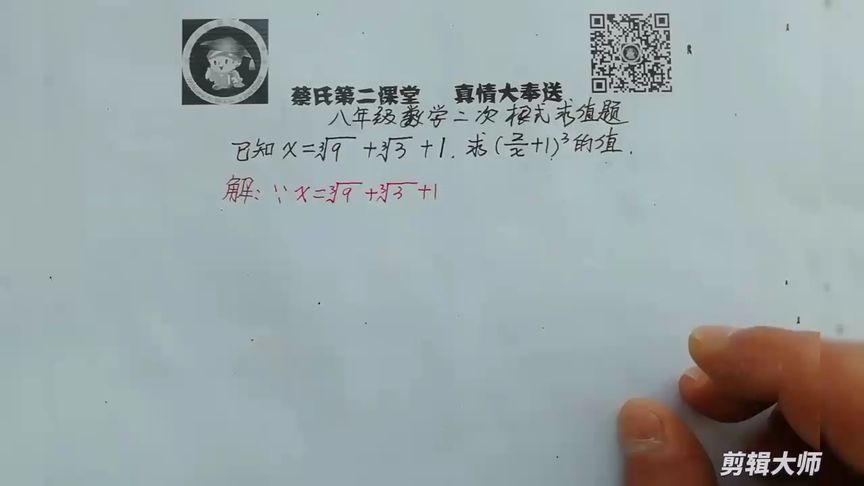 蔡氏第二课堂 真情大奉送
八年级数学二次根式求值题
已知 x=∛9 +∛3 +1. 求(2/x+1)³的值.
解: ∵ x=∛9 +∛3 +1
剪辑大师